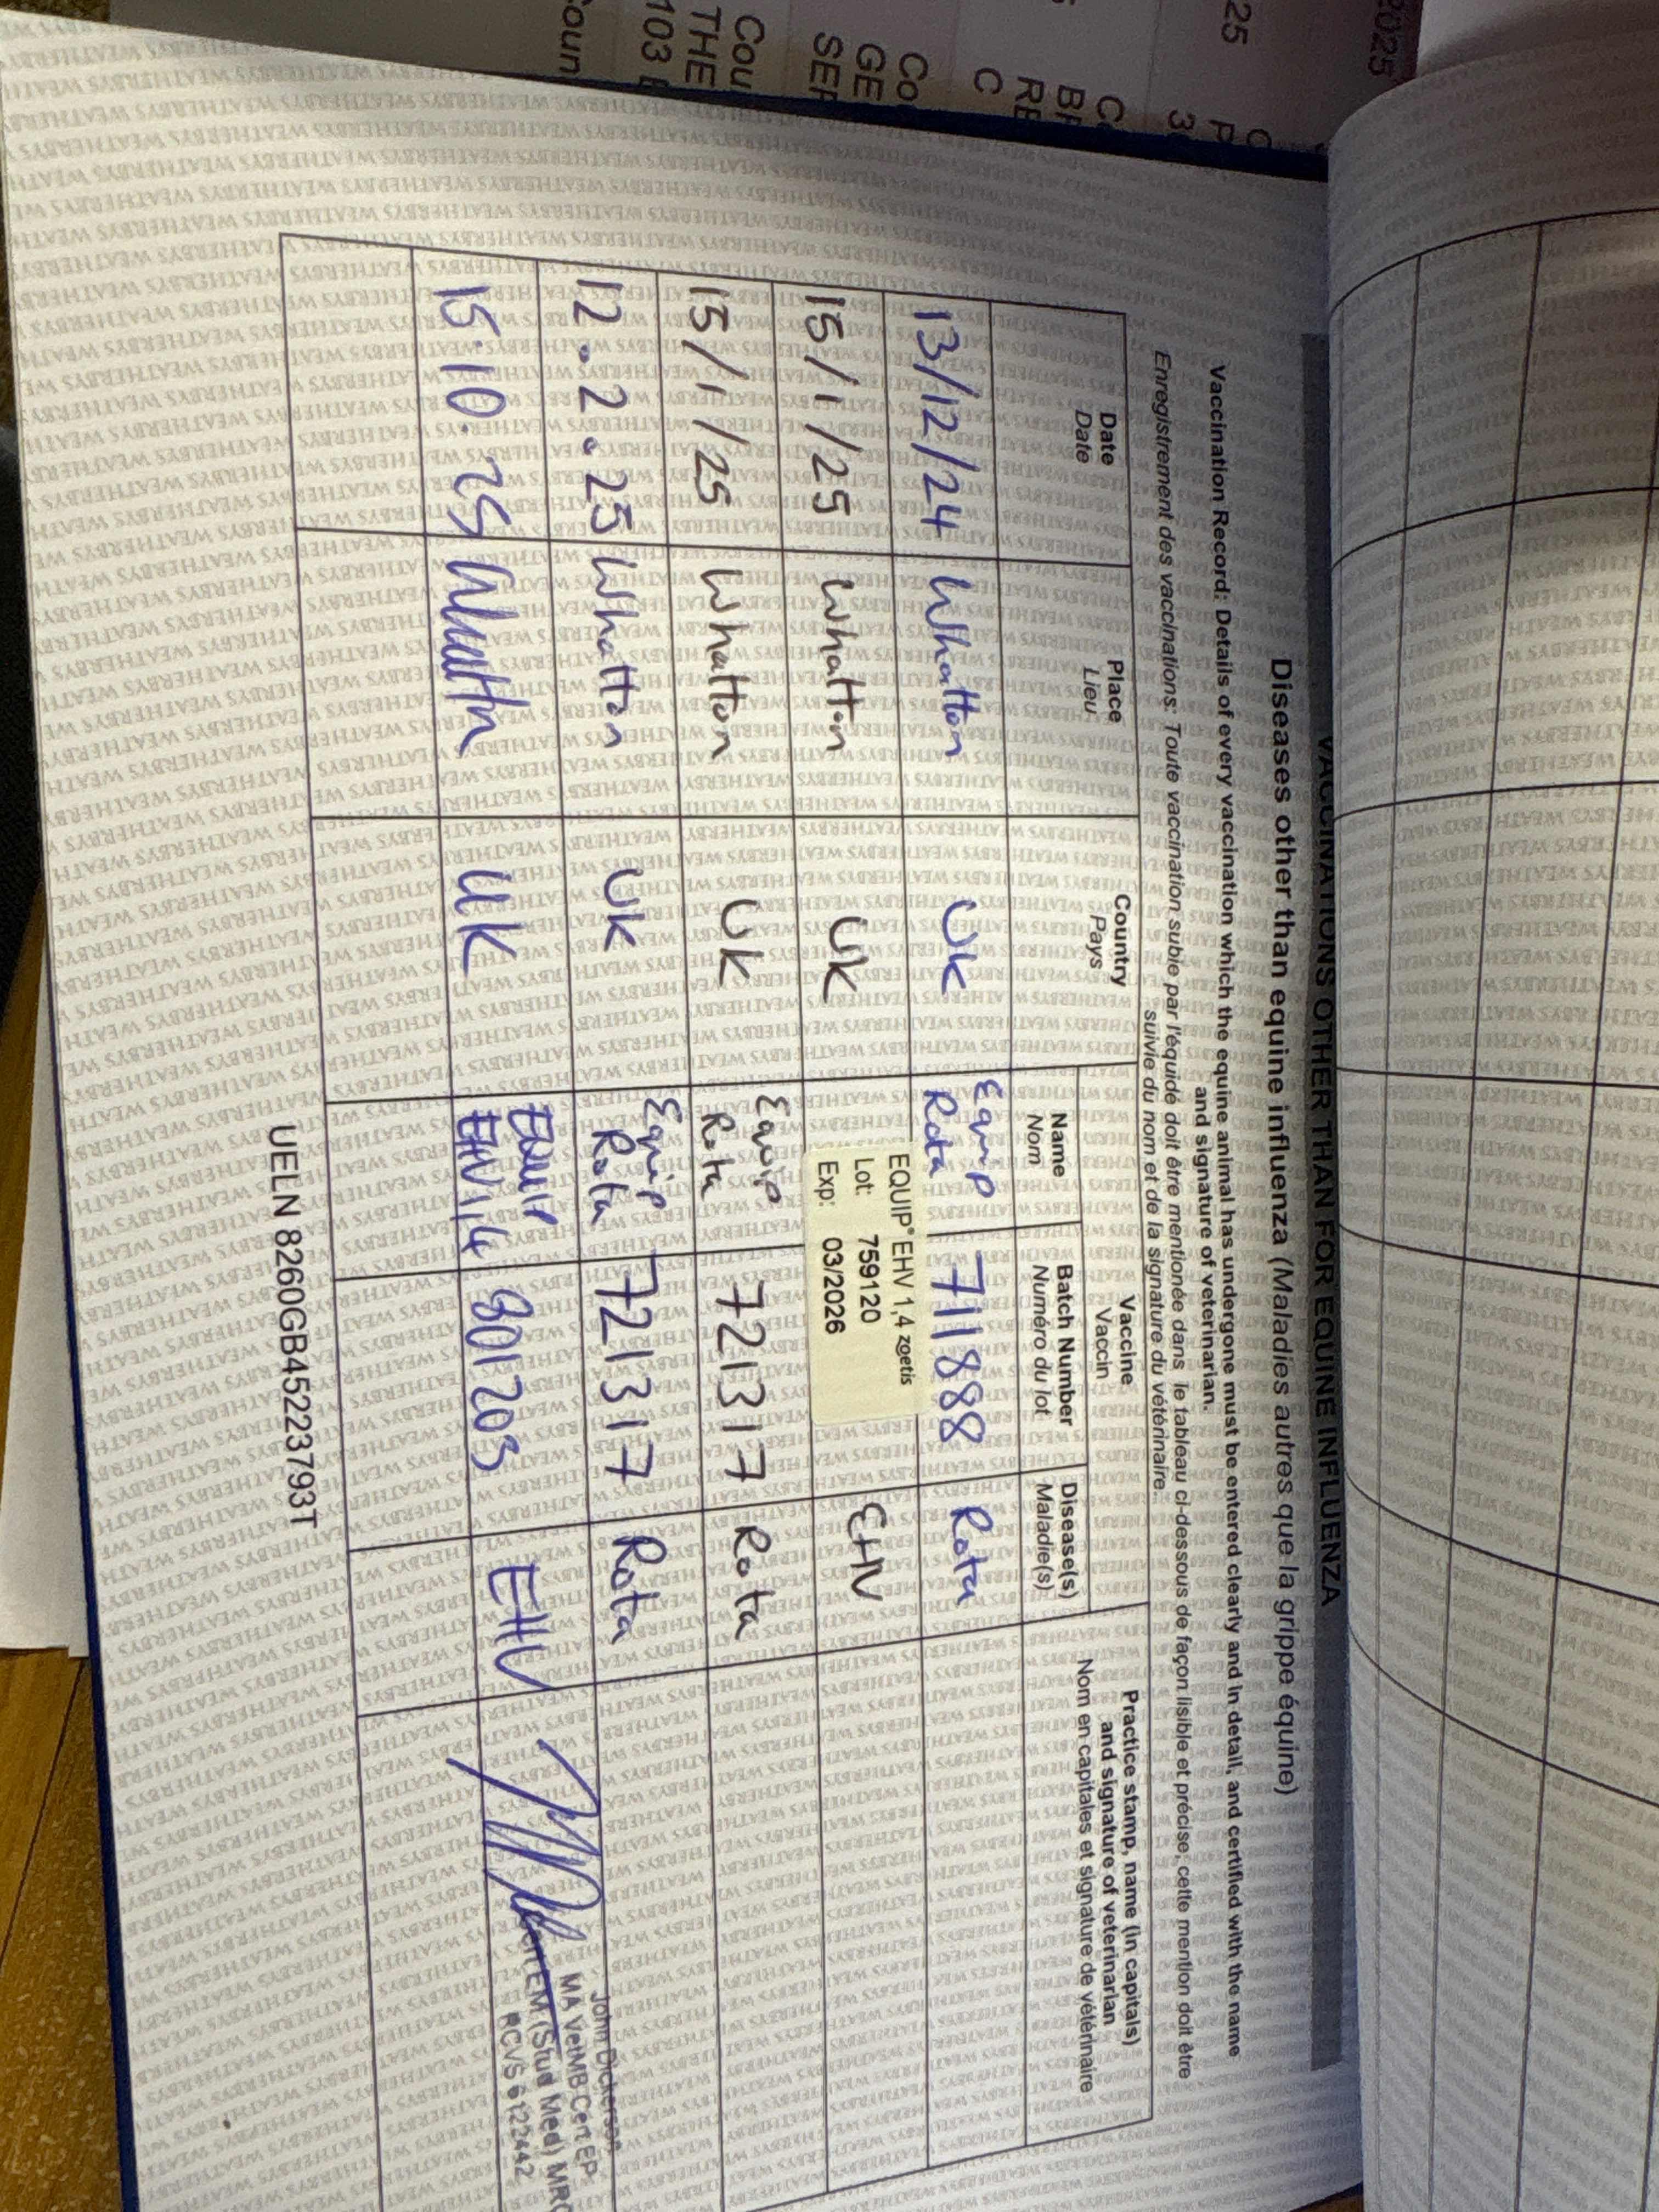 VACCINATIONS OTHER THAN FOR EQUINE INFLUENZA
Diseases other than equine influenza (Maladies autres que la grippe équine)
Vaccination Record: Details of every vaccination which the equine animal has undergone must be entered clearly and in detail, and certified with the name
and signature of veterinarian.
Enregistrement des vaccinations: Toute vaccination subie par l'équidé doit être mentionée dans le tableau ci-dessous de façon lisible et précise, cette mention doit être
suivie du nom et de la signature du vétérinaire.
Date Place Country Vaccine Practice stamp, name (in capitals)
Date Lieu Pays Vaccin and signature of veterinarian
Name Batch Number Disease(s) Nom en capitales et signature de vétérinaire
Nom Numéro du lot Maladie(s)
13/12/24 Whatton UK Equip Rota 711888 Rota
15/1/25 Whatton UK EHV
EQUIP® EHV 1,4 zoetis
Lot: 759120
Exp: 03/2026
15/1/25 Whatton UK Equip Rota 721317 Rota
12.2.25 Whatton UK Equip Rota 721317 Rota
15.10.25 Whatton UK EQUIP EHV1,4 801203 EHV
John Dickerson
MA VetMB Cert EP
EM (Stud Med) MRC
RCVS 6122442
UELN 8260GB45223793T
2025
25
Cou
THE
103
oun
GE